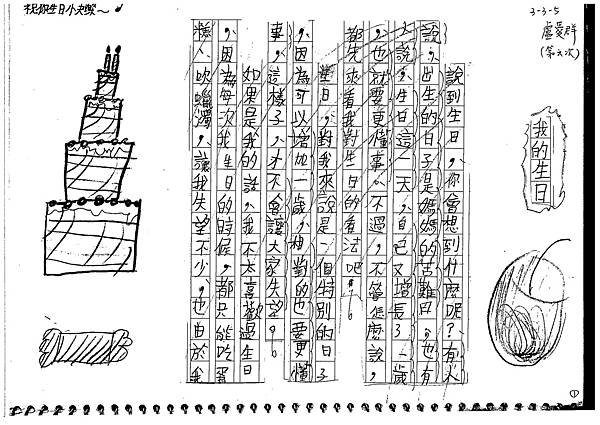 3-3-5
盧愛群
我的生日
說到生日，你會想到什麼呢？有人
說，出生的日子是媽媽的苦難日，也有
人說，生日這一天，自己又增長了一歲
，也就要更懂事，不過，不管怎麼說，
都先來看我對生日的看法吧
生日，對我來說是一個特別的日子
，因為可以增加一歲，相對的也要更懂
事，這樣子，才不會讓大家失望。
如果是我的話，我不太喜歡過生日
，因為每次我生日的時候，都只能吃蛋
糕、吹蠟燭，讓我失望不少，也由於我
祝你生日小快樂～
①